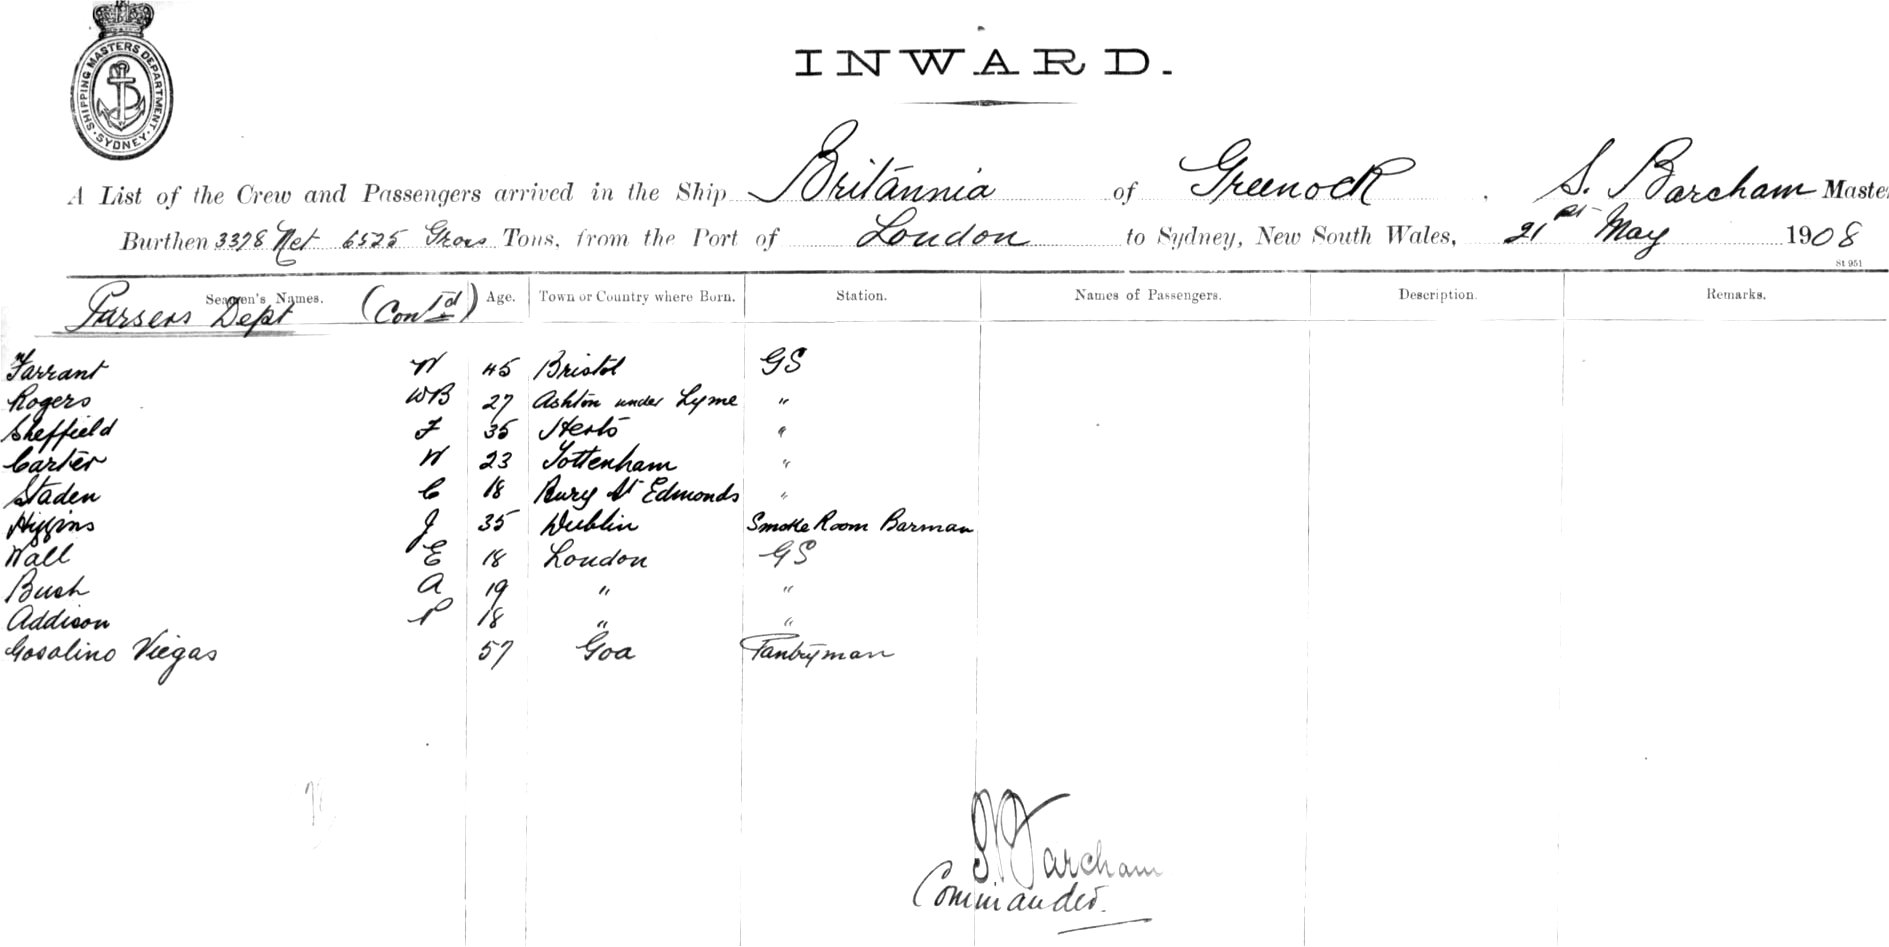 SHIPPING MASTERS DEPARTMENT
SYDNEY
INWARD.
A List of the Crew and Passengers arrived in the Ship Britannia of Greenock , S. Barcham Maste
Burthen 3378 Net 6525 Gross Tons, from the Port of London to Sydney, New South Wales, 21st May 1908
St 951
Seamen's Names. Age. Town or Country where Born. Station. Names of Passengers. Description. Remarks.
Pursers Dept (Contd)
Farrant W 45 Bristol GS
Rogers WB 27 Ashton under Lyme "
Sheffield F 35 Herts "
Carter W 23 Tottenham "
Staden C 18 Bury St Edmonds "
Higgins J 35 Dublin Smoke Room Barman
Wall E 18 London GS
Bush A 19 " "
Addison P 18 " "
Gosalino Viegas 57 Goa Pantryman
S Barcham
Commander.